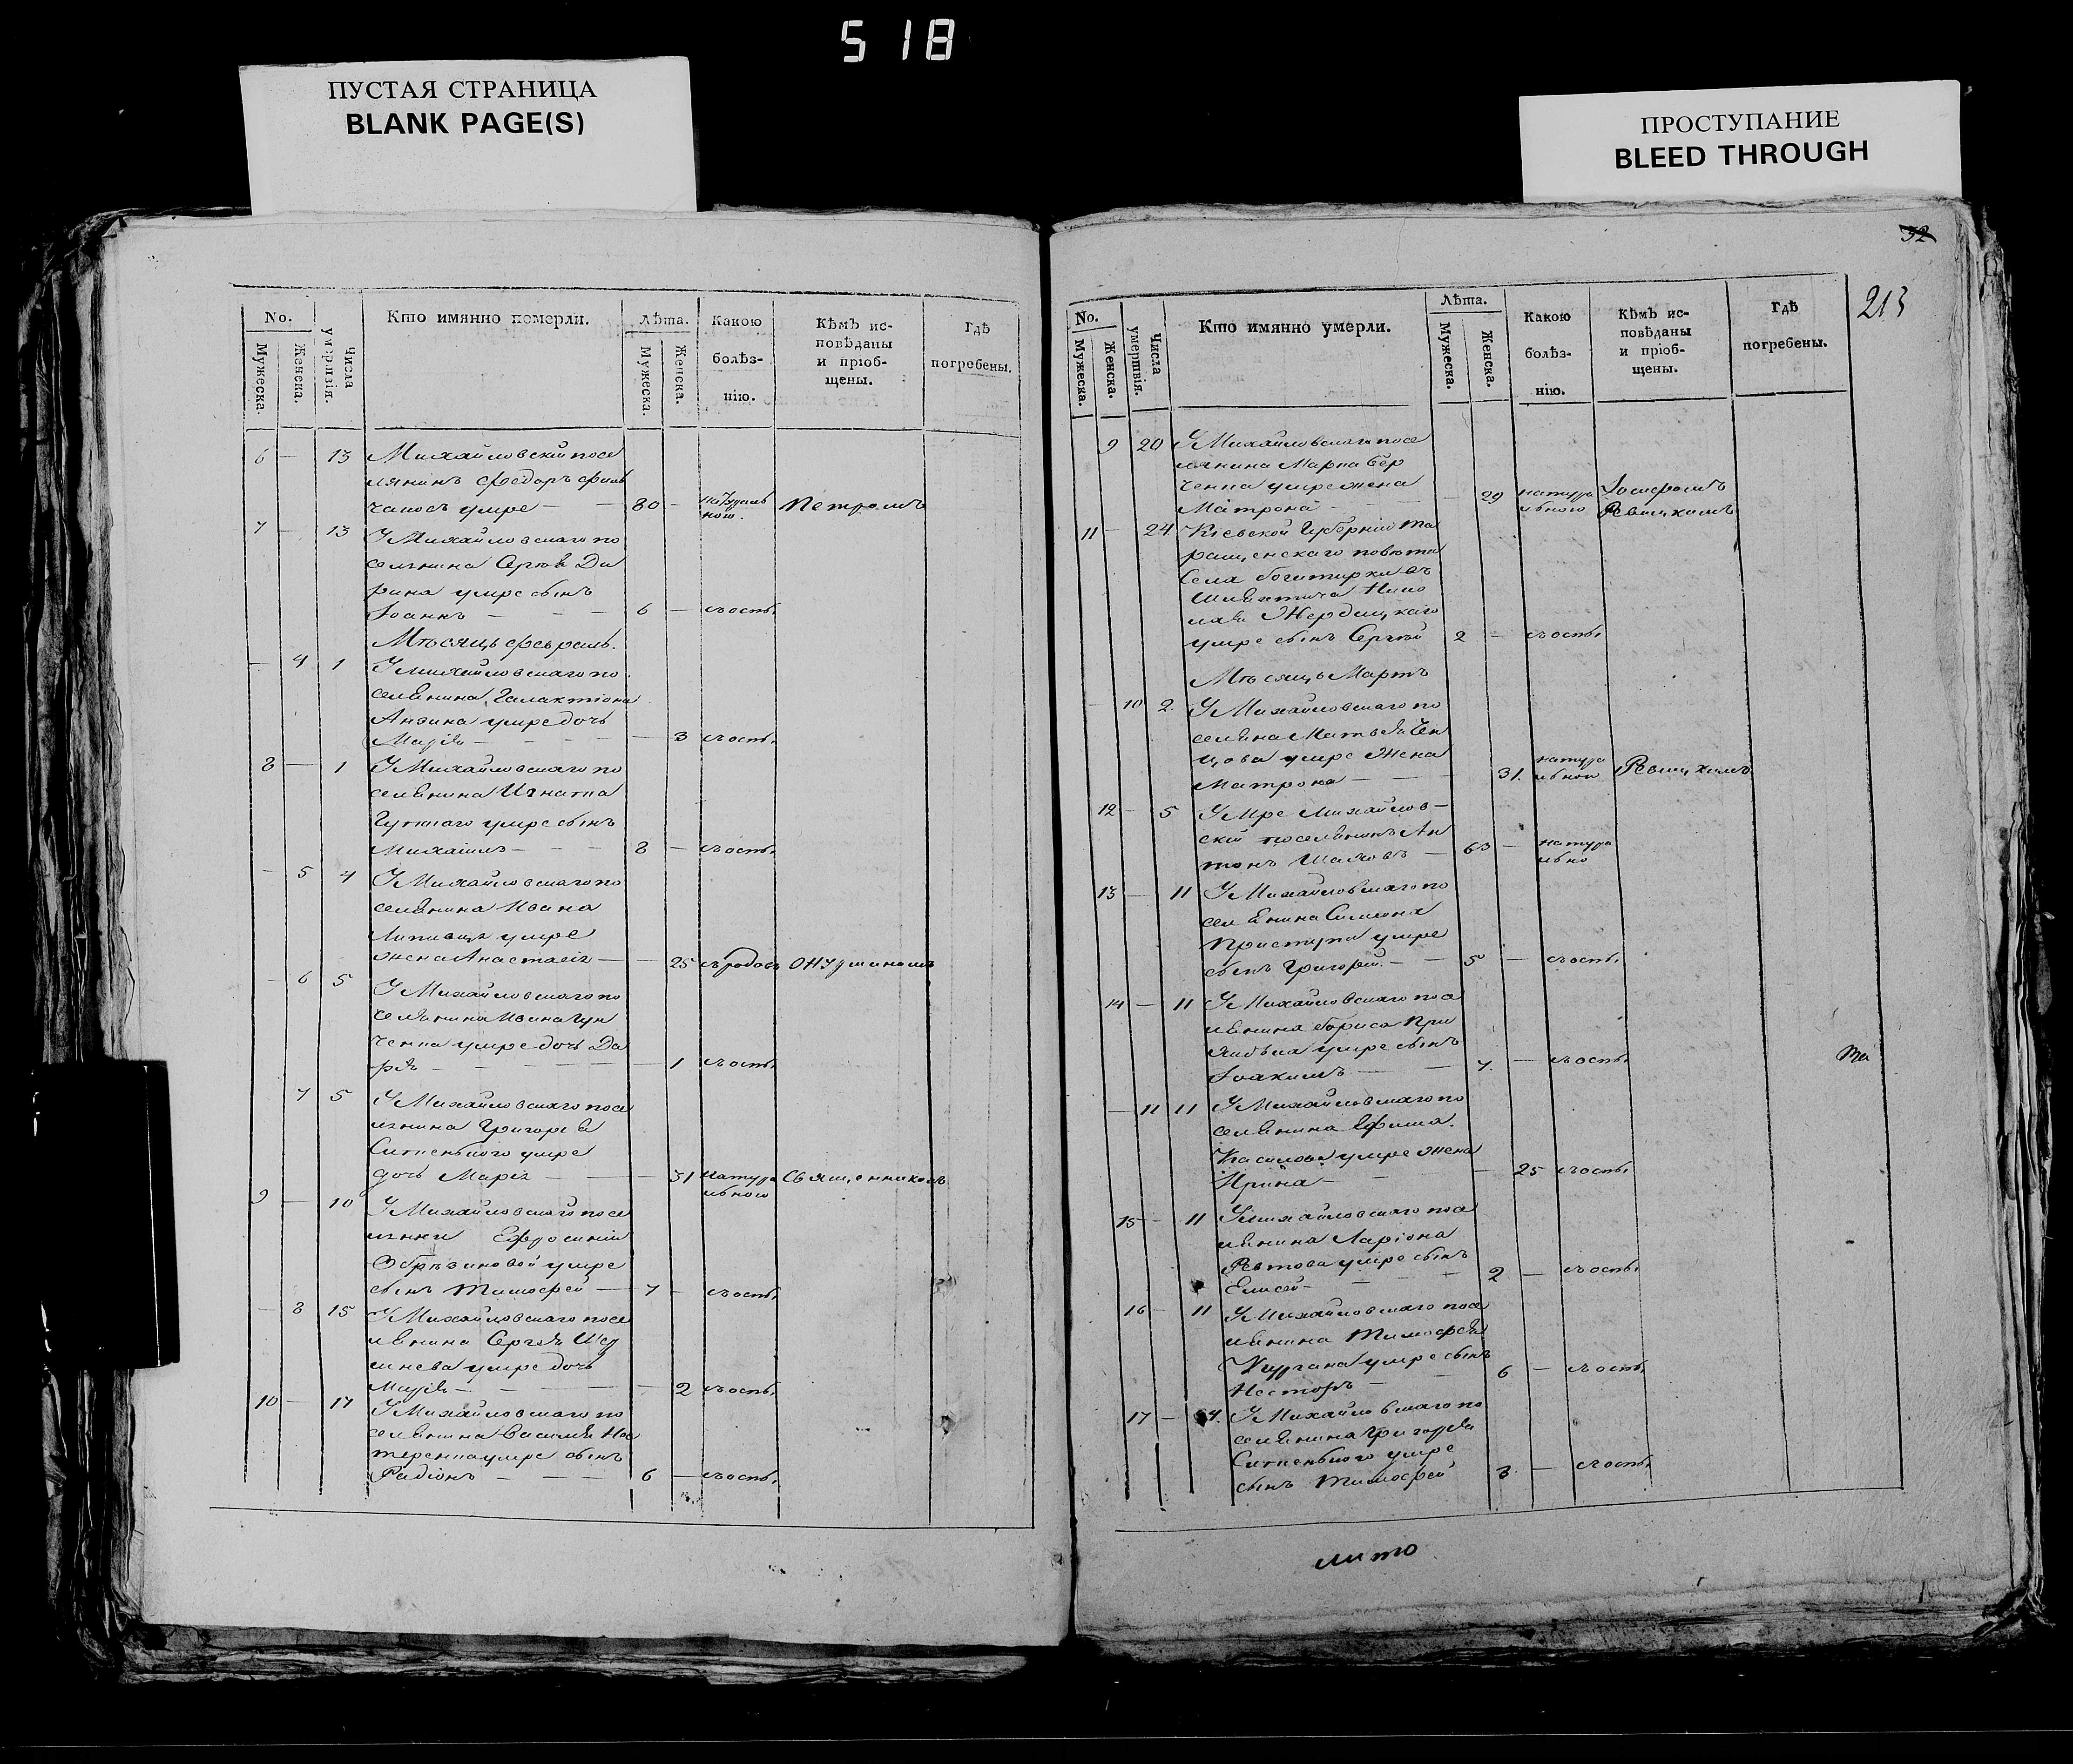 518
ПУСТАЯ СТРАНИЦА
BLANK PAGE(S)
ПРОСТУПАНИЕ
BLEED THROUGH
No.
Мужеска.
Женска.
Числа
умертвія.
Кто имянно померли.
Лѣта.
Мужеска.
Женска.
Какою
болѣз-
нію.
Кѣмъ ис-
повѣданы
и пріоб-
щены.
Гдѣ
погребены.
6 — 13 Михайловскій посе
лянинъ Федоръ
умре — — 80 — натураль
ною. Петромъ
7 — 13 У Михайловскаго по
селянина Сергѣя Да
рина умре сынъ
Іоаннъ — — — 6 — съоспы
Мѣсяцъ февраль.
— 4 1 У Михайловскаго по
селянина Галактіона
Анзина умре дочь
Марія — — — — 3 съоспы
8 — 1 У Михайловскаго по
селянина Игната
Гуткаго умре сынъ
Михаилъ — — — 8 — съоспы
— 5 4 У Михайловскаго по
селянина Ивана
умре
жена Анастасія — — 25 съродовъ
— 6 5 У Михайловскаго по
селянина Ивана Гун
ченка умре дочь Да
рія — — — — — 1 съоспы
7 5 У Михайловскаго посе
лянина Григорія
Ситненького умре
дочь Марія — — — 31 натура
льною Священникомъ
9 — 10 У Михайловскаго посе
лянки Ефросиніи
Обрѣзиновой умре
сынъ Тимофей — 7 — съоспы
— 8 15 У Михайловскаго посе
лянина Сергѣя
умре дочь
Марія — — — — 2 съоспы
10 — 17 У Михайловскаго по
селянина Василія Нес
теренка умре сынъ
Радіонъ — — — 6 — съоспы
32
213
No.
Мужеска.
Женска.
Числа
умертвія.
Кто имянно умерли.
Лѣта.
Мужеска.
Женска.
Какою
болѣз-
нію.
Кѣмъ ис-
повѣданы
и пріоб-
щены.
Гдѣ
погребены.
9 20 У Михайловскаго посе
лянина Марка Бер
ченка умре жена
Матрона — — — 29 натура
льною Іосифомъ
Рѣвицкимъ
11 — 24 Кіевской Губерніи Та
ращенскаго повѣта
Села Богатырки
шляхтича Нико
лая Жердицкаго
умре сынъ Сергѣй 2 — съоспы
Мѣсяцъ Мартъ
— 10 2. У Михайловскаго по
селянина Матвѣя Чен
цова умре жена
Матрона — — — 31. натура
льной Рѣвицкимъ
12 — 5 Умре Михайлов-
скій поселянинъ Ан
тонъ Шаховъ — 63 — натура
льно
13 — 11 У Михайловскаго по
селянина Симеона
Приступи умре
сынъ Григорій. — — 5 — съоспы
14 — 11 У Михайловскаго посе
лянина Бориса При
умре сынъ
Іоакимъ — — 7. — съоспы
— 11 11 У Михайловскаго по
селянина Ефима.
Касилова умре жена
Ирина — — — 25 съоспы
15 — 11 У Михайловскаго посе
лянина Ларіона
Рѣтова умре сынъ
Елисей — — — 2 — съоспы
16 — 11 У Михайловскаго посе
лянина Тимофея
Кургана умре сынъ
Несторъ — — 6 — съоспы
17 — 4. У Михайловскаго по
селянина Григорія
Ситненького умре
сынъ Тимофей 3. — съоспы
та
лито